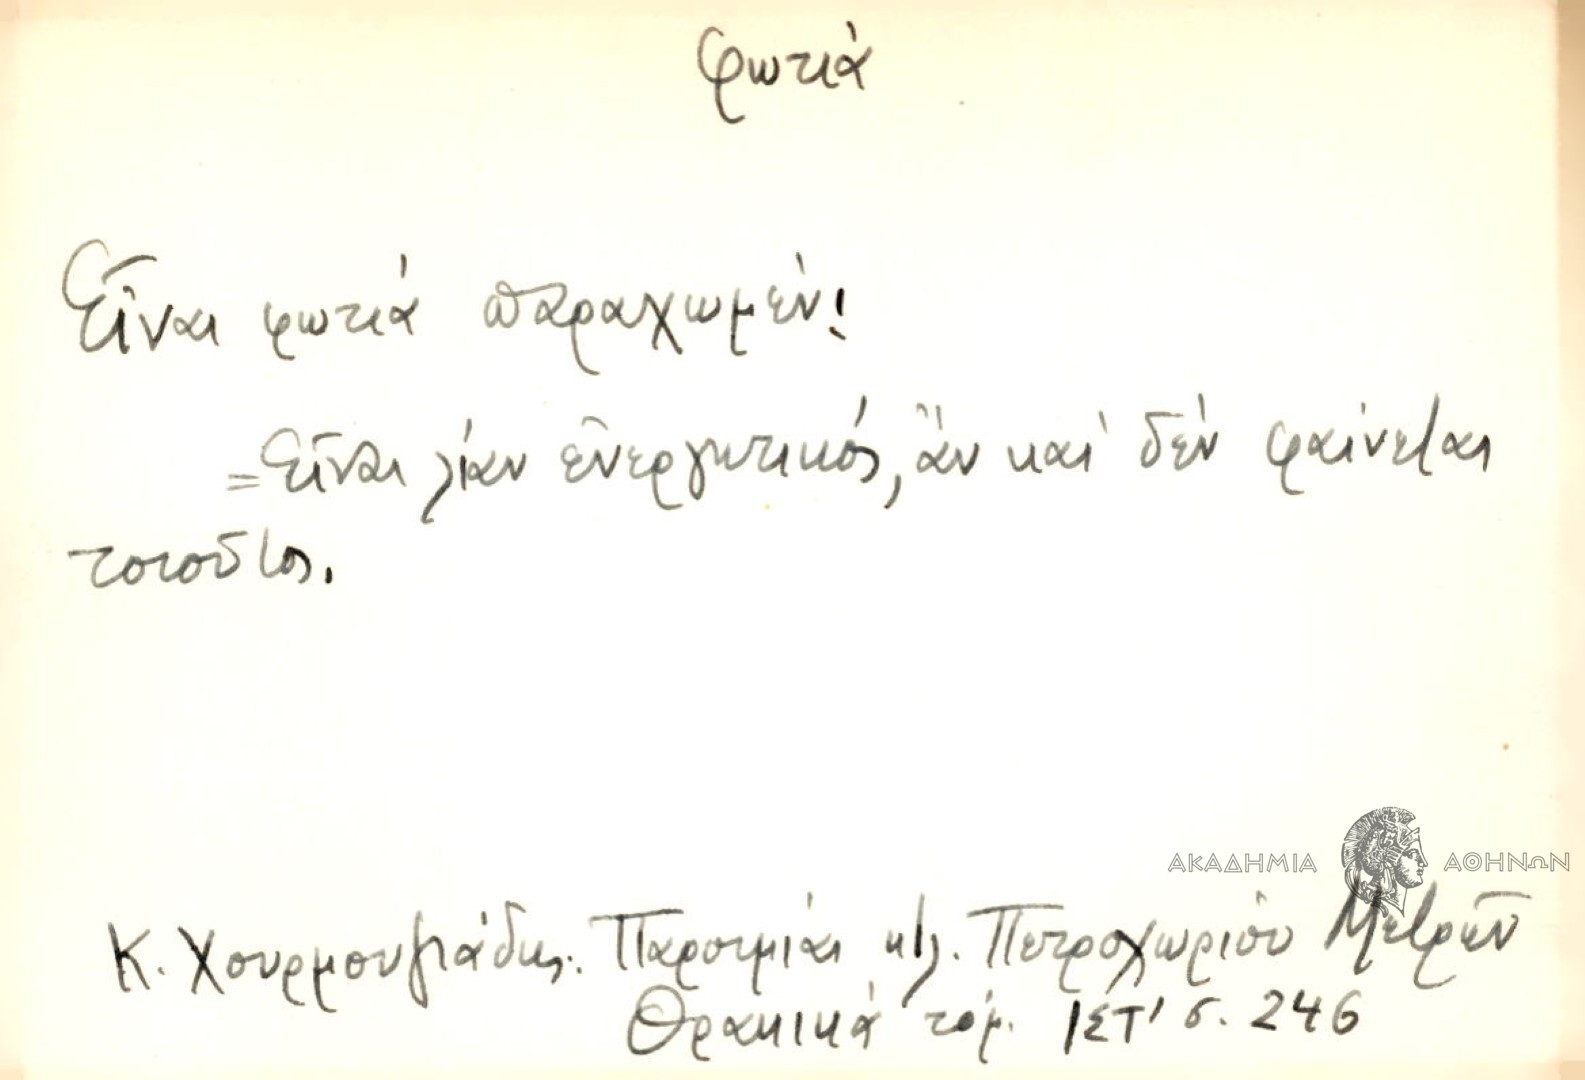 φωτιά
Εἶναι φωτιά παραχωμέν!
=Εἶναι λίαν ἐνεργητικός, ἄν καί δέν φαίνεται
τοιοῦτος.
ΑΚΑΔΗΜΙΑ ΑΘΗΝΩΝ
Κ. Χουρμουζιάδης. Παροιμίαι κτλ. Πετροχωρίου Μετρῶν
Θρακικά τόμ. ΙΣΤ' σ. 246